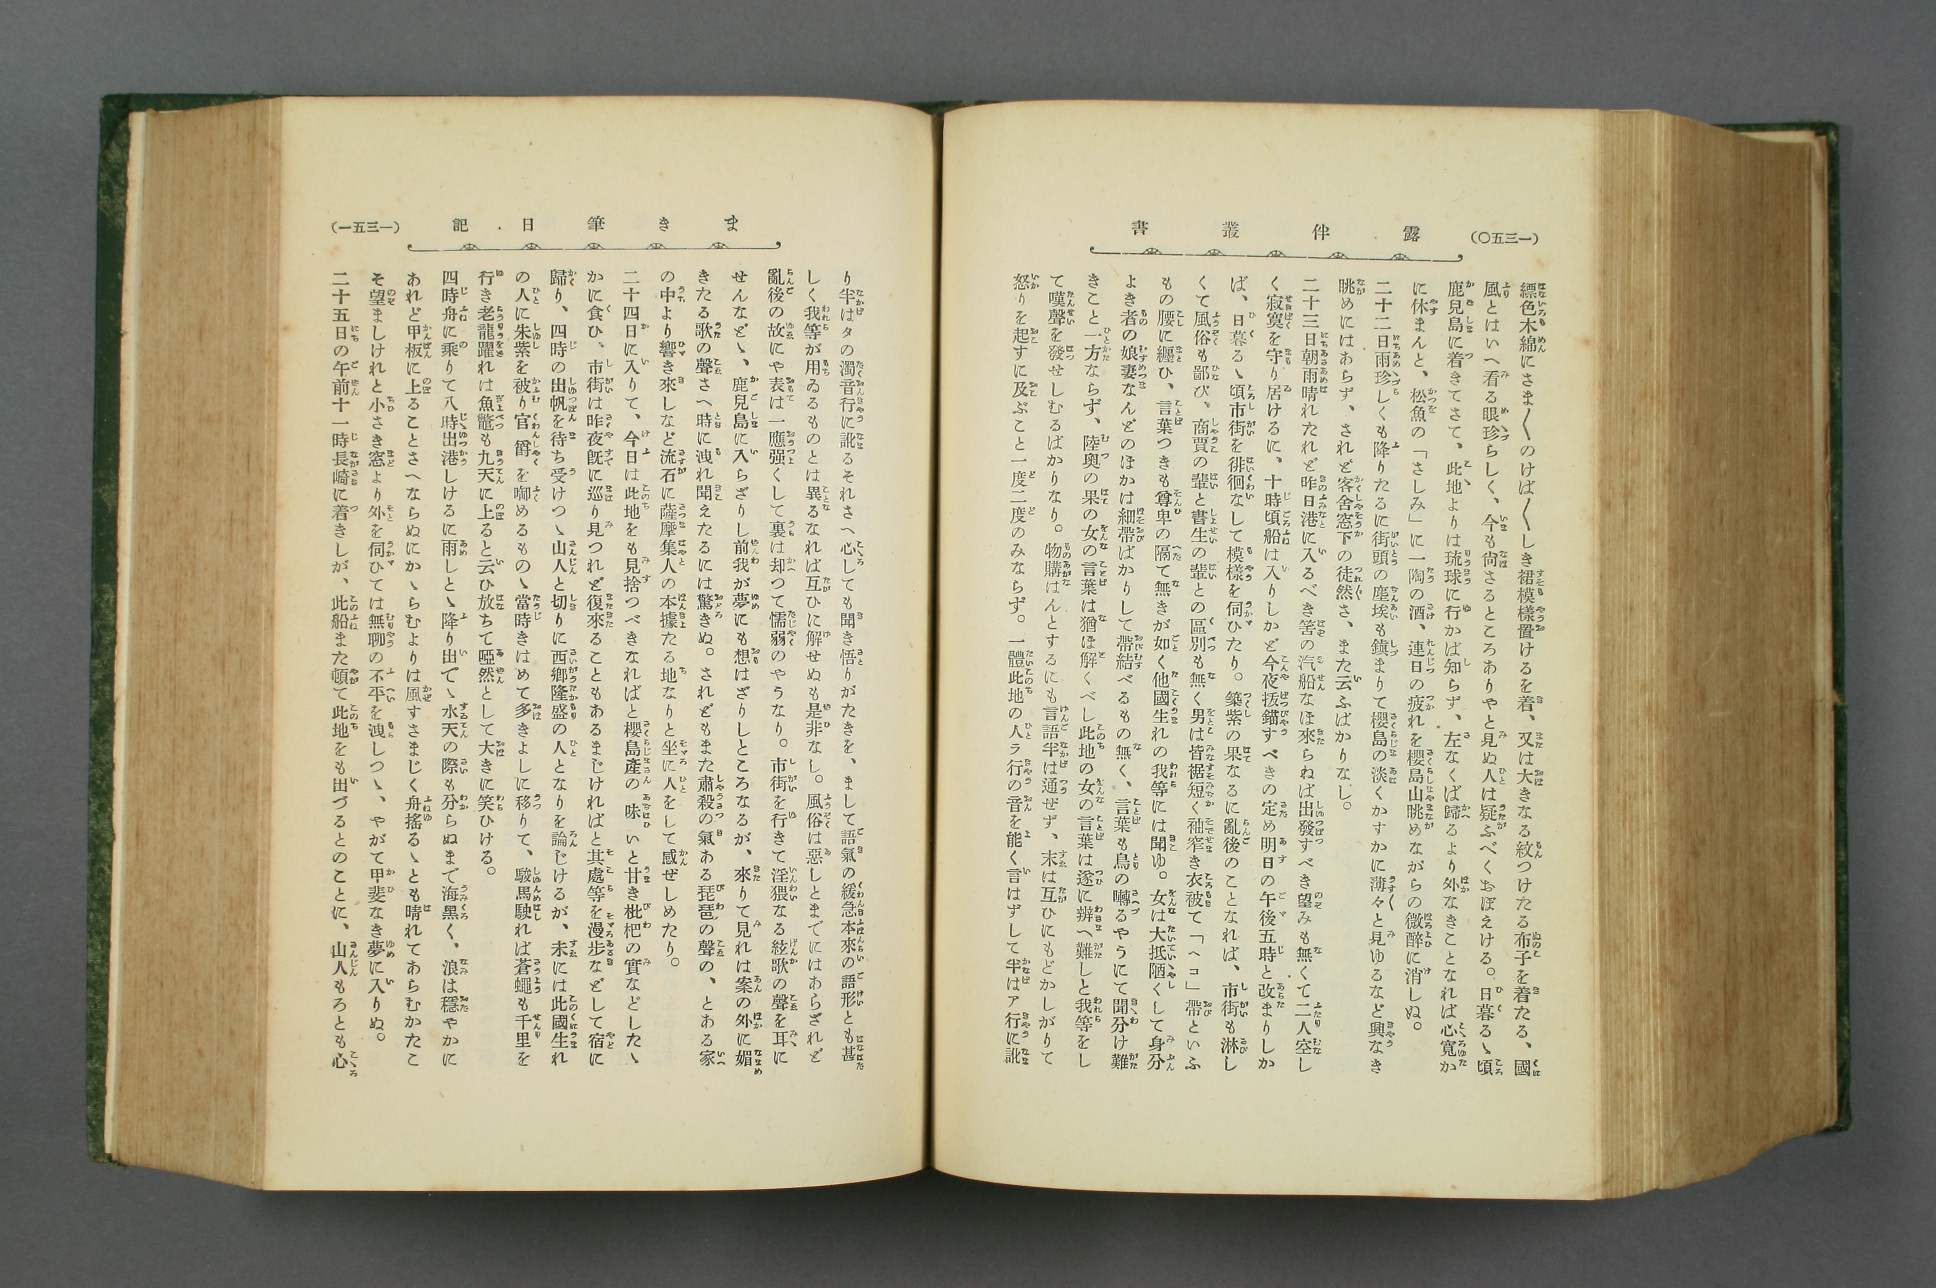 露伴叢書
(一三五〇)
縹色木綿にさま〴〵のけば〳〵しき裙模様置けるを着、又は大きなる紋つけたる布子を着たる、國
風とはいへ看る眼珍らしく、今も尙さるところありやと見ぬ人は疑ふべくおぼえける。日暮るゝ頃
鹿兒島に着きてさて、此地よりは琉球に行かば知らず、左なくば歸るより外なきことなれば心寛か
に休まんと、松魚の「さしみ」に一陶の酒、連日の疲れを櫻島山眺めながらの微醉に消しぬ。
二十二日雨珍しくも降りたるに街頭の塵埃も鎭まりて櫻島の淡くかすかに薄々と見ゆるなど興なき
眺めにはあらず、されど客舍窓下の徒然さ、また云ふばかりなし。
二十三日朝雨晴れたれど昨日港に入るべき筈の汽船なほ來らねば出發すべき望みも無くて二人空し
く寂寞を守り居けるに、十時頃船は入りしかど今夜拔錨すべきの定め明日の午後五時と改まりしか
ば、日暮るゝ頃市街を徘徊なして模様を伺ひたり。築紫の果なるに亂後のことなれば、市街も淋し
くて風俗も鄙び、商賈の輩と書生の輩との區別も無く男は皆裾短く袖窄き衣被て「ヘコ」帶といふ
もの腰に纒ひ、言葉つきも尊卑の隔て無きが如く他國生れの我等には聞ゆ。女は大抵陋くして身分
よき者の娘妻なんどのほかは細帶ばかりして帶結べるもの無く、言葉も鳥の囀るやうにて聞分け難
きこと一方ならず、陸奧の果の女の言葉は猶ほ解くべし此地の女の言葉は遂に辨へ難しと我等をし
て嘆聲を發せしむるばかりなり。物購はんとするにも言語半は通ぜず、末は互ひにもどかしがりて
怒りを起すに及ぶこと一度二度のみならず。一體此地の人ラ行の音を能く言はずして半はア行に訛
まき筆日記
(一三五一)
り半はタの濁音行に訛るそれさへ心しても聞き悟りがたきを、まして語氣の緩急本來の語形とも甚
しく我等が用ゐるものとは異るなれば互ひに解せぬも是非なし。風俗は惡しとまでにはあらざれど
亂後の故にや表は一應强くして裏は却つて懦弱のやうなり。市街を行きて淫猥なる絃歌の聲を耳に
せんなどゝ、鹿兒島に入らざりし前我が夢にも想はざりしところなるが、來りて見れは案の外に媚
きたる歌の聲さへ時に洩れ聞えたるには驚きぬ。されどもまた肅殺の氣ある琵琶の聲の、とある家
の中より響き來しなど流石に薩摩隼人の本據たる地なりと坐に人をして感ぜしめたり。
二十四日に入りて、今日は此地をも見捨つべきなればと櫻島產の味いと甘き枇杷の實などしたゝ
かに食ひ、市街は昨夜旣に巡り見つれど復來ることもあるまじければと其處等を漫步などして宿に
歸り、四時の出帆を待ち受けつゝ山人と切りに西鄕隆盛の人となりを論じけるが、末には此國生れ
の人に朱紫を被り官爵を啣めるものゝ當時きはめて多きよしに移りて、駿馬駛れば蒼蠅も千里を
行き老龍躍れは魚鼈も九天に上ると云ひ放ちて啞然として大きに笑ひける。
四時舟に乘りて八時出港しけるに雨しとゝ降り出でゝ水天の際も分らぬまで海黑く、浪は穩やかに
あれど甲板に上ることさへならぬにかゝらむよりは風すさまじく舟搖るゝとも晴れてあらむかたこ
そ望ましけれと小さき窓より外を伺ひては無聊の不平を洩しつゝ、やがて甲斐なき夢に入りぬ。
二十五日の午前十一時長崎に着きしが、此船また頓て此地をも出づるとのことに、山人もろとも心